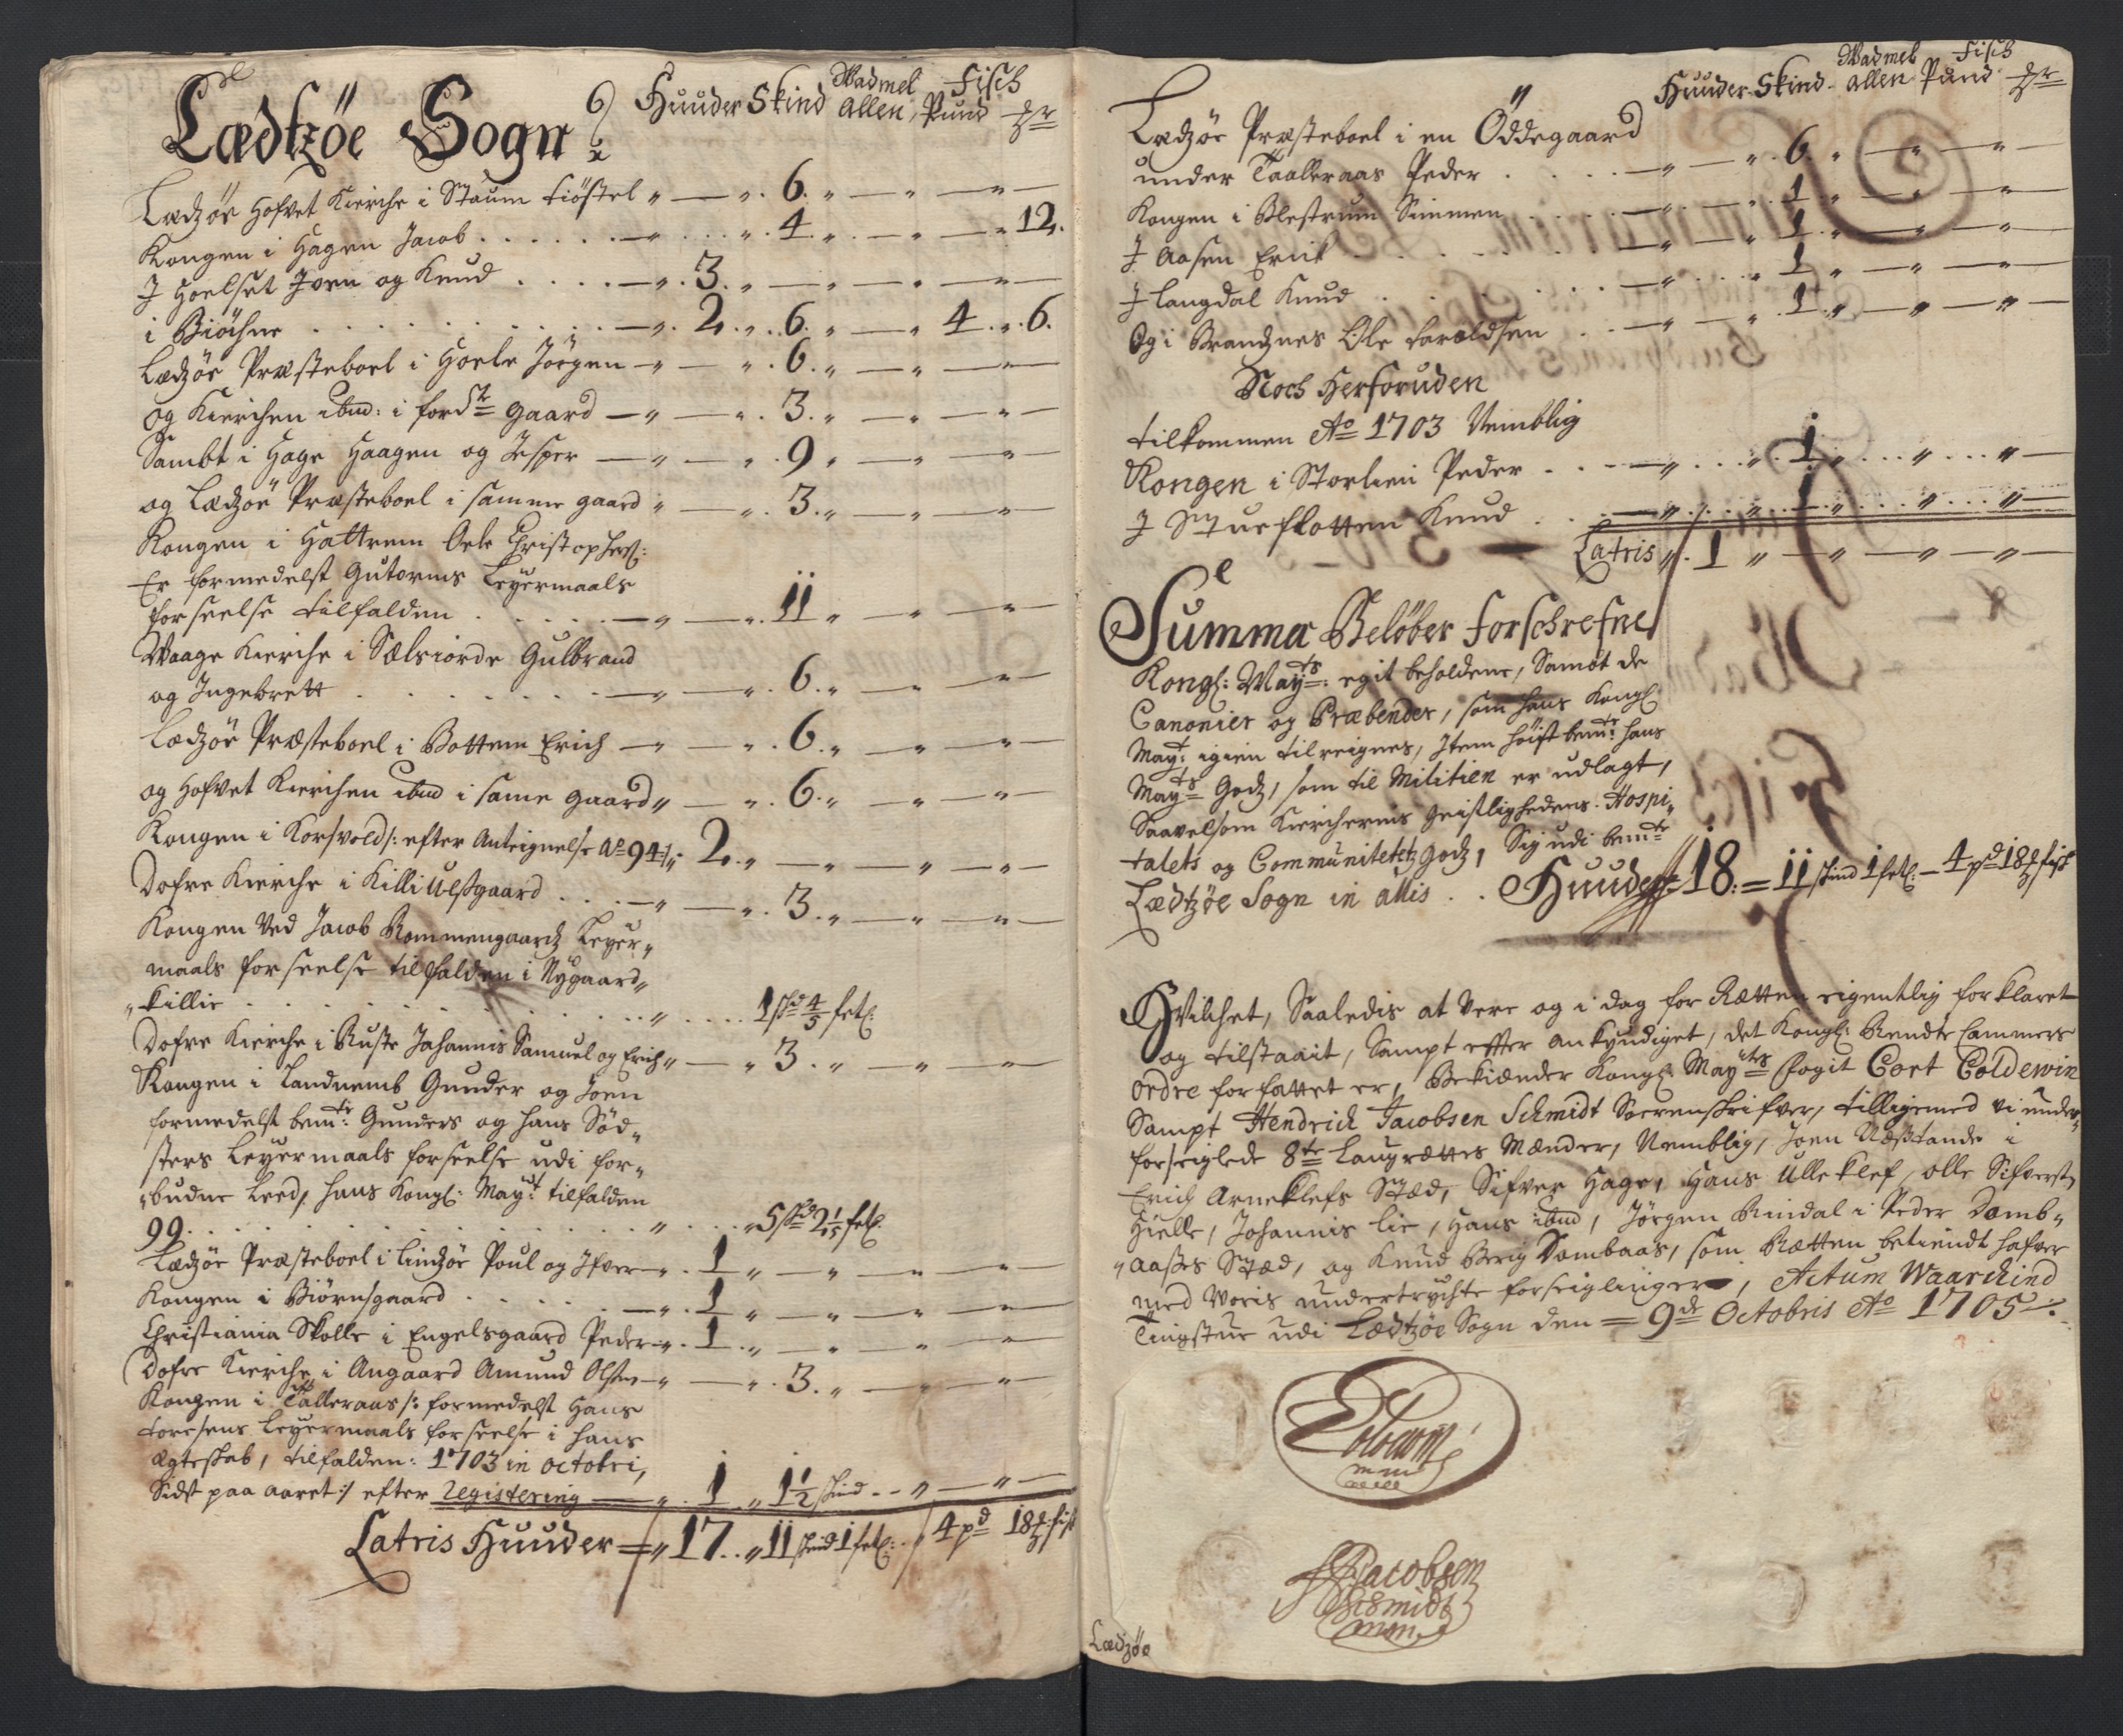 Lædtzöe Sogn
Huuder Skind Wadmel Allen, Fisch Pund ℔r
Lædzöe Hofvet Kierche i Staum Tiöstel „ — „ . 6. „ — „ — „ —
Kongen i Hagen Jacob . . . . . . — „ . . . „ . 4 „ . — „ — „ 12.
J Hoelset Joen og Knud . . . . — „ . 3. „ — „ — „ —
i Biöchne . . . . . . . . — „ . 2 . „ . . 6. „ — „ 4 . „ . 6.
Lædzöe Præsteboel i Hoele Jörgen — „ — „ . 6. „ — „ — „ —
og Kierchen ibid: i fordte gaard — „ — „ . 3. „ — „ — „ —
Sambt i Hage Haagen og Jesper — „ — „ . 9 „ — „ — „ —
og Lædzöe Præsteboel i samme gaard „ — „ . 3. „ — „ — „ —
Kongen i Hattrem Oele Christophers:
Er formedelst Gutorms Leyermaals
forseelse tilfalden . . . . . — „ — „ . 11 „ — „ — „ —
Waage Kierche i Sælsiorde Gulbrand
og Ingebrett . . . . . . . — „ — „ . 6. „ — „ — „ —
Lædzöe Præsteboel i Bottem Erich — „ — „ . 6. „ — „ — „ —
og Hofvet Kierchen ibid i same gaard „ — „ . 6. „ — „ — „ —
Kongen i Korsvold /: efter Anteignelse Ao 94 :/ „ . 2. „ — „ — „ — „ —
Dofre Kierche i Killi Ulfsgaard . . . — „ — „ . 3. „ — „ — „ —
Kongen Ved Jacob Rommengaardz Leyer„
maals forseelse tilfalden i Nygaard„
„Killie . . . . . . . . . . . . „ . . . . 1 skd 4/5 fetl:
Dofre Kierche i Ruste Johannis Samuel og Erich „ — „ 3 . „ — „ — „ —
Kongen i Landnemb Gunder og Joen
formedelst bemte: Gunders og hans Söd„
sters Leyermaals forseelse udi for„
„budne Leed, hans Kongl: Mayt: tilfalden
99. . . . . . . . . . . . . . . „ . . . . „ 5 skd 2 1/15 fetl.
Lædzöe Præsteboel i Lindzöe Poul og Ifver — „ . 1 „ — „ — „ — „ —
Kongen i Biörnsgaard . . . . . — „ . 1 „ — „ — „ — „ —
Christiania Skolle i Engelsgaard Peder — „ . 1 . „ — „ — „ — „ —
Dofre Kierche i Angaard Amund Olsen — „ — „ . 3. „ — „ — „ —
Kongen i Talleraas /: formedelst Hans
Toresens Leyermaals forseelse i hans
Egteskab, tilfalden: 1703 in octobri,
Sidst paa aaret :/ efter Registering — „ . 1 . „ 1 1/2 skind . . „ — „ —
Latris Huuder = „ 17 . . „ 11 skind 1 fetl: . . 4 pd 18 ℔ fisk
Huuder Skind Wadmel Allen Fisch Pund ℔r
Lædzöe Præsteboel i en Öddegaard
under Taalleraas Peder . . . . — „ — „ . 6. „ — „ — „ —
Kongen i Blestrum Simmen . . . . — „ — „ . 1 „ — „ — „ —
J Aasen Erick . . . . . . . — „ — „ . 1 „ — „ — „ —
J Langdal Knud . . . . . . — „ . . . „ 1 „ — „ — „ —
Og i Brandznes Ole Haroldsen . . — „ — „ . 1 . „ — „ — „ —
Noch Herforuden
tilkommen Ao 1703 Nemblig
Kongen i Storlien Peder . . . — „ . . . „ . 1 „ . . . „ . . . „ —
J Stueflotten Knud . . . — „ . . . „ . 1 . „ . . . „ . . . „ —
Latris „ . 1 „ — „ — „ — „ —
Summa Belöber forschrefne
Kongl: Mayts: egit beholdene, Sambt de
Canonier og Præbender, som hans Kongl
Mayt: igien tilreignes, Item höist bemte: hans
Mayts Godz, som til Militien er udlagt,
Saavelsom Kierchernis Geistlighedens. Hospi„
talets og Communitetetz godz, Sig udi bemte
Lædtzöe Sogn in allis . . Huuder 18 : = 11 skind 1 fetl: — 4 pd 18 ℔ fisk
Hvilchet, Saaledis at Være og i dag for Rætten eigentlig forklaret
og tilstaait, Sampt efter ankyndiget, det Kongl: Rendte Cammers
ordre forfattet er, Bekiender Kongl: Mayts fogit Cort Coldewin
Sampt Hendrich Jacobsen Schmidt Sorenskrifver, tilligemed vi under„
forseiglede 8te Laugrettes Mænder, Nemblig, Joen Næstande i
Erich Arneklefs Stæd, Sifver Hage, Hans Ulleklef, olle Sifverst
Hielle, Johannis lie, Hans ibid, Jörgen Rindal i Peder Domb„
„aasses Stæd, og Knud Berg Dombaas, som Rætten betiendt hafver
med Woris undertrychte forseiglinger, Actum Waarkind
Tingstue udi Lædtzöe Sogn den = 9de Octobris Ao 1705 :/:
Coldewin
mm
HJacobsen
Schmidt
mm.
Lædzöe